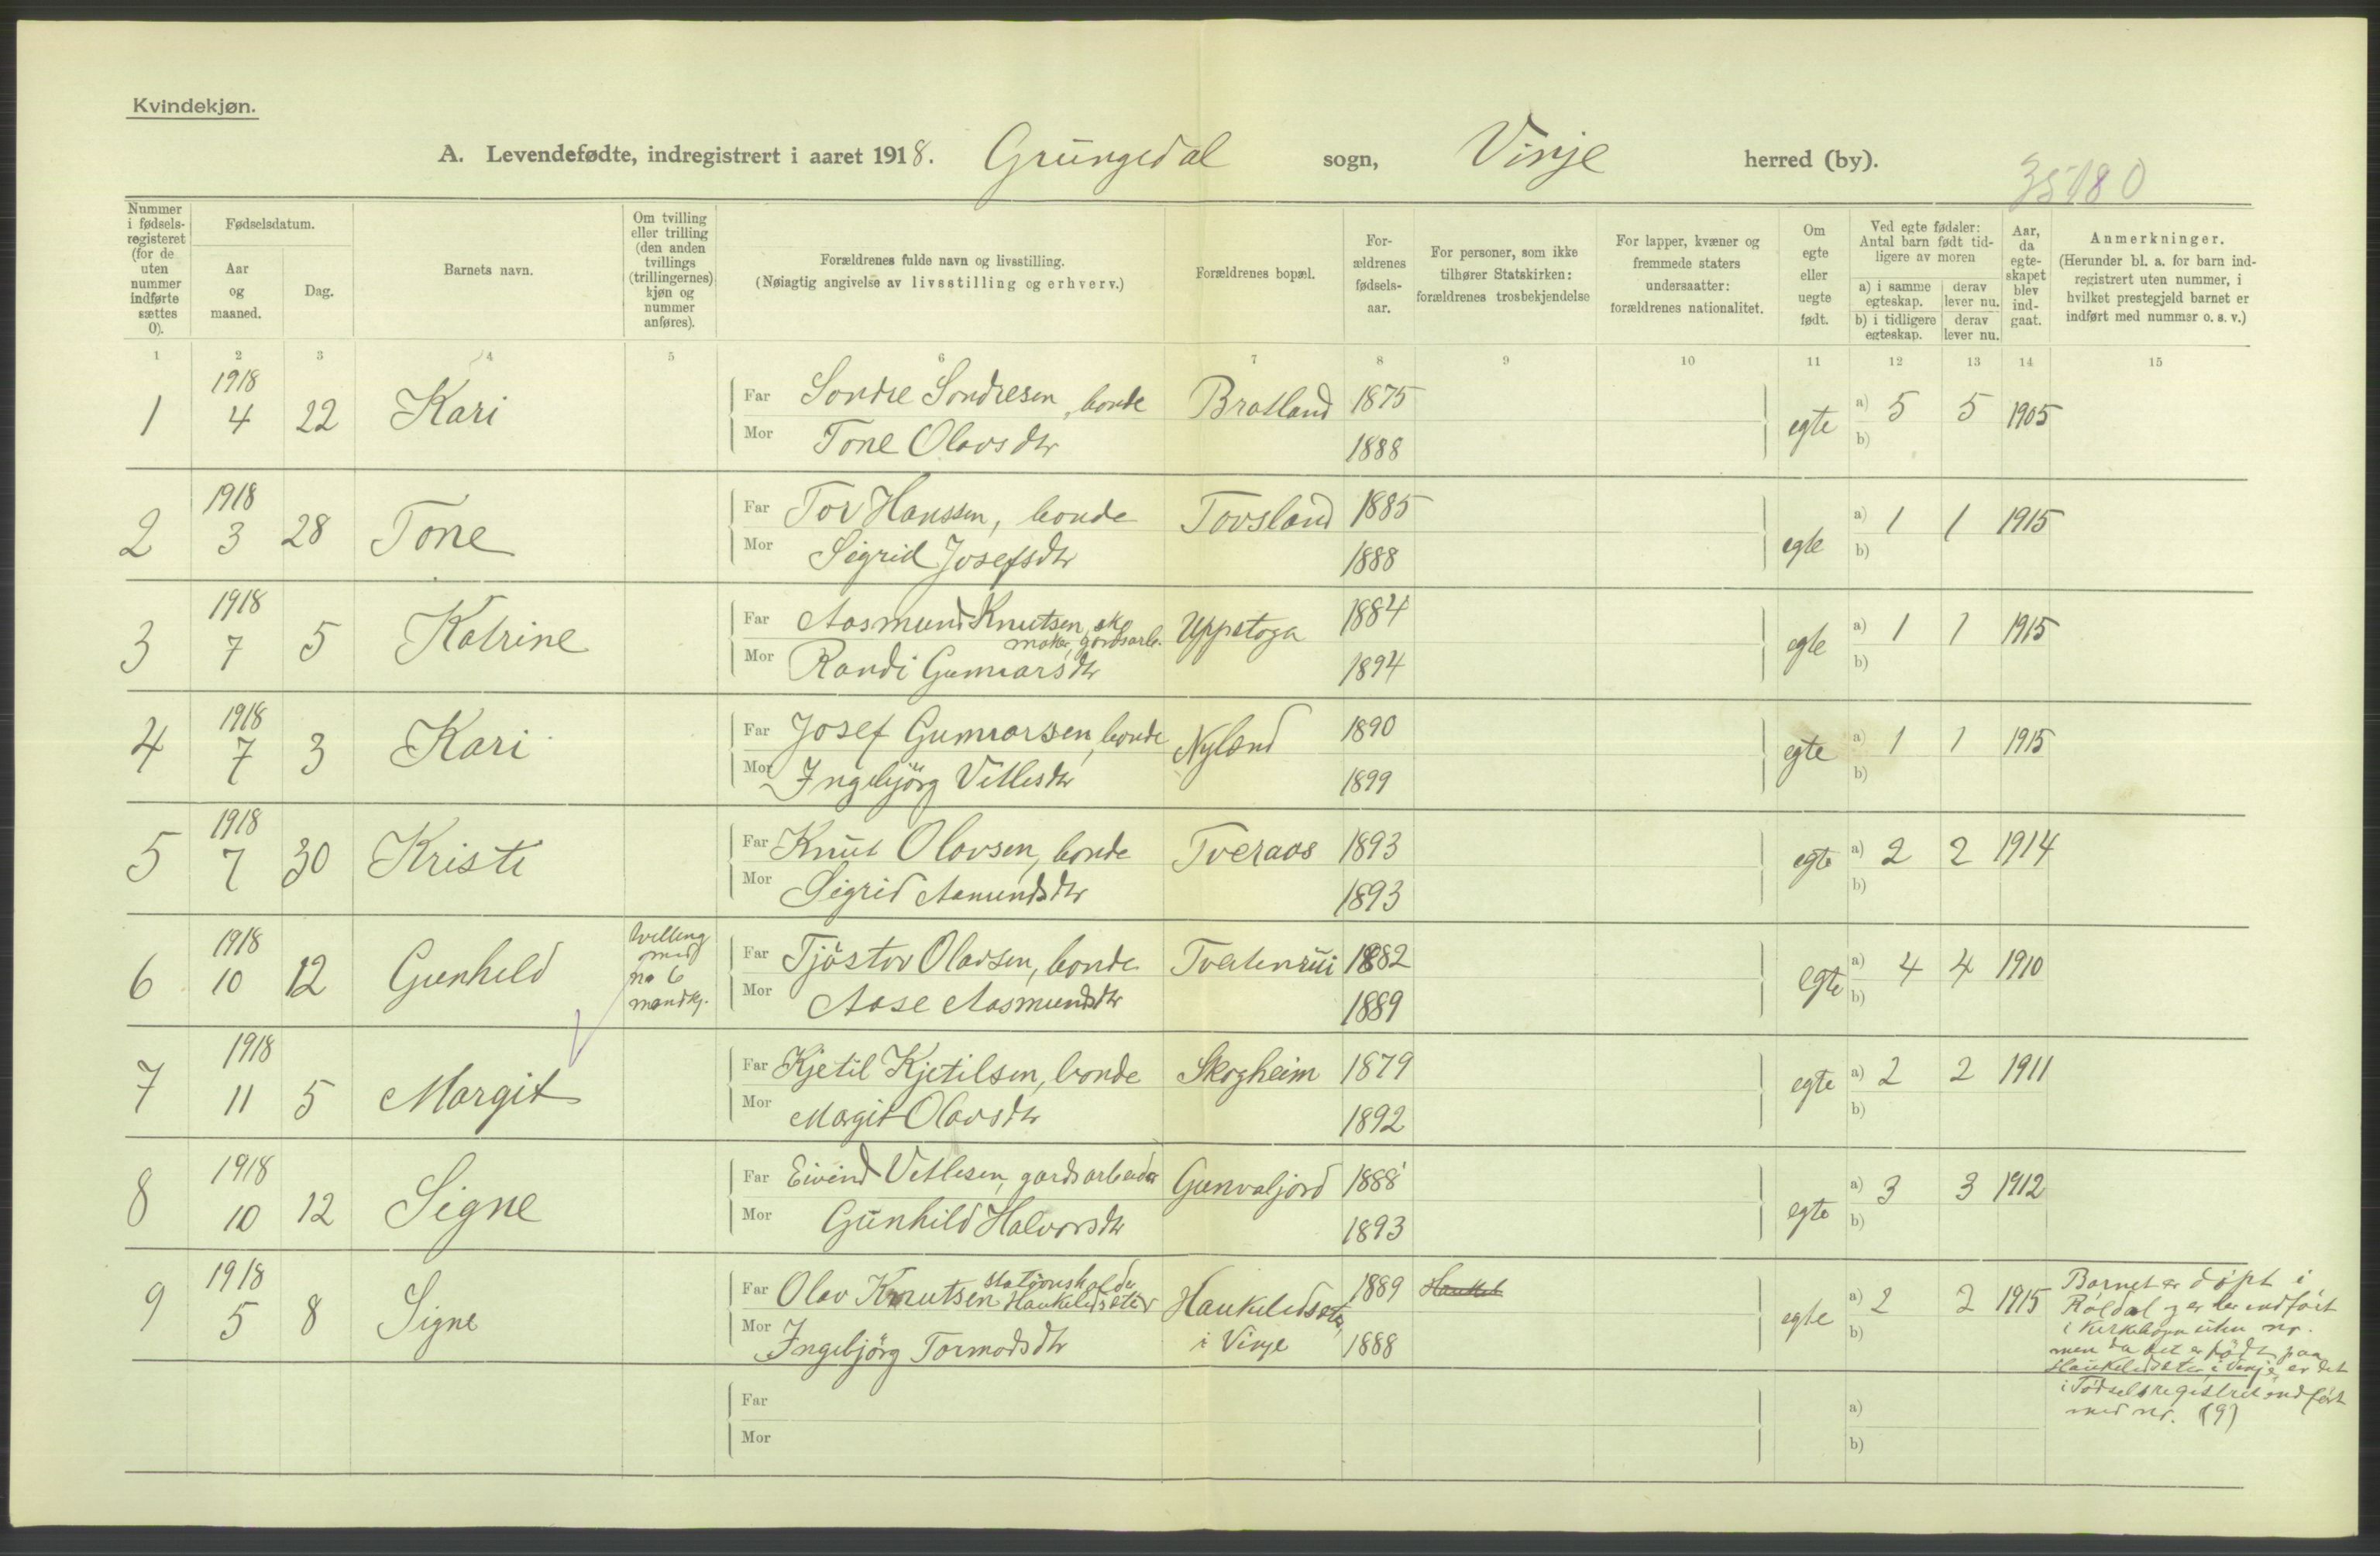 Kvindekjøn.
A. Levendefødte, indregistrert i aaret 1918. Grungedal sogn, Vinje herred (by).
35180
Nummer i fødselsregisteret (for de uten nummer indførte sættes 0).
Fødselsdatum.
Aar og maaned.
Dag.
Barnets navn.
Om tvilling eller trilling (den anden tvillings (trillingernes) kjøn og nummer anføres).
Forældrenes fulde navn og livsstilling.
(Nøiagtig angivelse av livsstilling og erhverv.)
Forældrenes bopæl.
Forældrenes fødselsaar.
For personer, som ikke tilhører Statskirken: forældrenes trosbekjendelse
For lapper, kvæner og fremmede staters undersaatter: forældrenes nationalitet.
Om egte eller uegte født.
Ved egte fødsler: Antal barn født tidligere av moren
a) i samme egteskap. derav lever nu.
b) i tidligere egteskap. derav lever nu.
Aar, da egteskapet blev indgaat.
Anmerkninger.
(Herunder bl. a. for barn indregistrert uten nummer, i hvilket prestegjeld barnet er indført med nummer o. s. v.)
1 2 3 4 5 6 7 8 9 10 11 12 13 14 15
1 1918 4 22 Kari Far Sondre Sondresen, bonde Bratland 1875 egte a) 5 5 1905
Mor Tone Olavsdtr 1888 b)
2 1918 3 28 Tone Far Tor Hanssen, bonde Tovsland 1885 egte a) 1 1 1915
Mor Sigrid Josefsdtr 1888 b)
3 1918 7 5 Katrine Far Aasmund Knutsen, sko Uppstoga 1884 egte a) 1 1 1915
maker, gardsarb.
Mor Randi Gunnarsdtr 1894 b)
4 1918 7 3 Kari Far Josef Gunnarsen, bonde Nyland 1890 egte a) 1 1 1915
Mor Ingebjörg Vetlesdtr 1899 b)
5 1918 7 30 Kristi Far Knut Olavsen, bonde Tveraos 1893 egte a) 2 2 1914
Mor Sigrid Aamundsdtr 1893 b)
6 1918 10 12 Gunhild tvilling med no 6 mandkj. Far Tjöstov Olavsen, bonde Tveitenrui 1882 egte a) 4 4 1910
Mor Aase Aasmundsdtr 1889 b)
7 1918 11 5 Margit Far Kjetil Kjetilsen, bonde Skogheim 1879 egte a) 2 2 1911
Mor Margit Olavsdtr 1892 b)
8 1918 10 12 Signe Far Eivind Vetlesen, gardsarbeider Gunvaljord 1888 egte a) 3 3 1912
Mor Gunhild Halvorsdtr 1893 b)
9 1918 5 8 Signe Far Olav Knutsen stationsholder Haukelidsæter Haukelidsæter, i Vinje 1889 Haukel egte a) 2 2 1915
Mor Ingebjörg Tormodsdtr 1888 b)
Barnet er döpt i
Röldal og er der indfört
i kirkebogen uten nr.
men da det er födt paa
Haukelidsæter i Vinje er det
i Födselsregistret indfört
med nr. (9)
Far a)
Mor b)